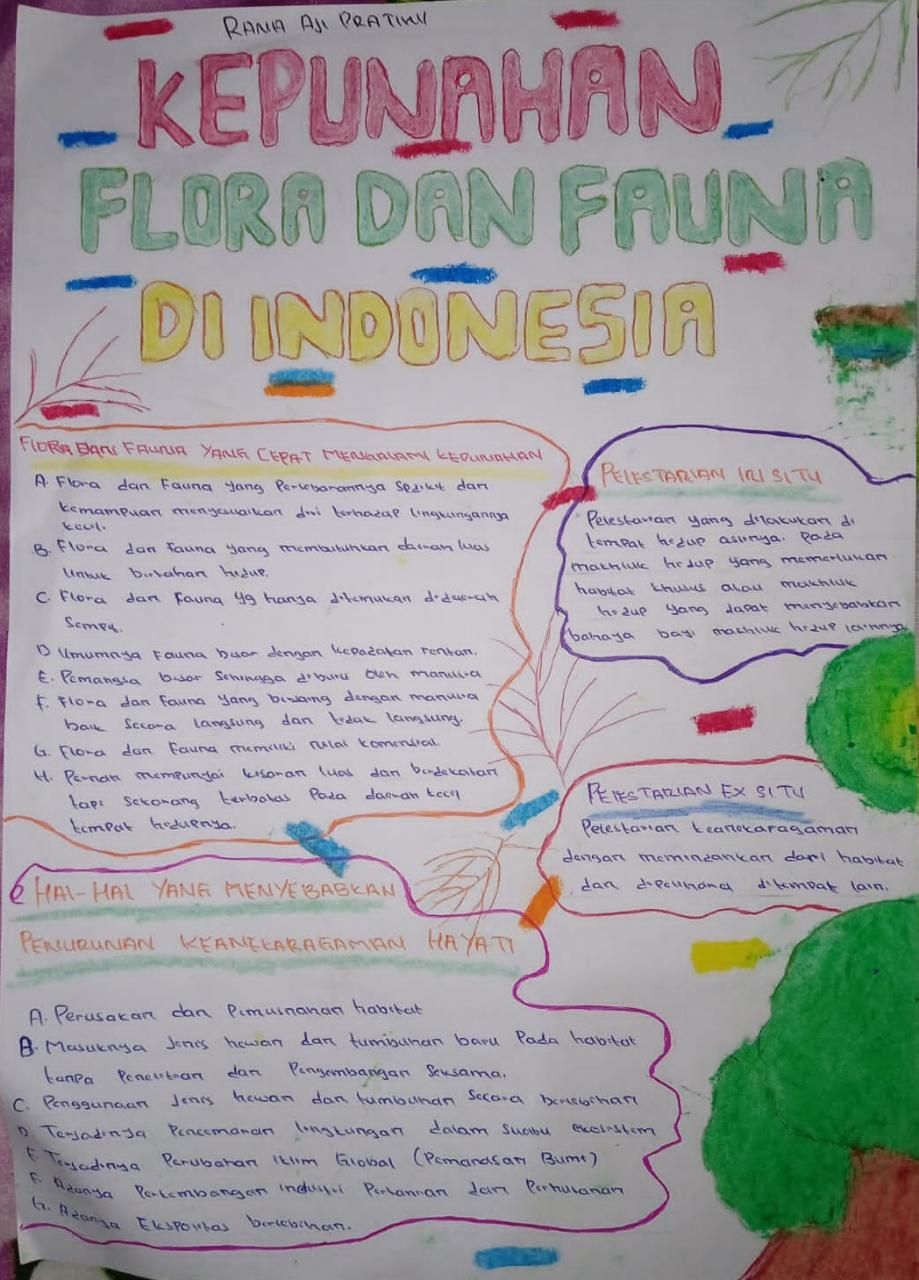 RANIA AJI PRATIWI
KEPUNAHAN
FLORA DAN FAUNA
DI INDONESIA
FLORA DAN FAUNA YANG CEPAT MENGALAMI KEPUNAHAN
A. Flora dan Fauna yang Persebarannya Sedikit dan
kemampuan menyesuaikan diri terhadap lingkungannya
kecil.
B. Flora dan Fauna yang membutuhkan daerah luas
Untuk bertahan hidup.
C. Flora dan Fauna yg hanya ditemukan didaerah
Sempit.
D Umumnya Fauna besar dengan kepadatan rentan.
E. Pemangsa besar Sehingga diburu oleh manusia
F. Flora dan Fauna yang bersaing dengan manusia
baik Secara langsung dan tidak langsung.
G. Flora dan Fauna memiliki nilai komersial
H. Pernah mempunyai kisaran luas dan berdekatan
tapi Sekarang terbatas Pada daerah kecil
tempat hidupnya.
PELESTARIAN IN SITU
Pelestarian yang dilakukan di
tempat hidup aslinya. Pada
makhluk hidup yang memerlukan
habitat khusus atau makhluk
hidup yang dapat menyebabkan
bahaya bagi makhluk hidup lainnya
PELESTARIAN EX SITU
Pelestarian keanekaragaman
dengan memindahkan dari habitat
dan dipelihara ditempat lain.
HAL-HAL YANG MENYEBABKAN
PENURUNAN KEANEKARAGAMAN HAYATI
A. Perusakan dan Pemusnahan habitat
B. Masuknya Jenis hewan dan tumbuhan baru Pada habitat
tanpa Penelitian dan Pengembangan Seksama.
C. Penggunaan Jenis hewan dan tumbuhan Secara berlebihan
D. Terjadinya Pencemaran lingkungan dalam Suatu ekosistem
E. Terjadinya Perubahan Iklim Global (Pemanasan Bumi)
F. Adanya Perkembangan industri Pertanian dan Perhutanan
G. Adanya Eksploitas berlebihan.